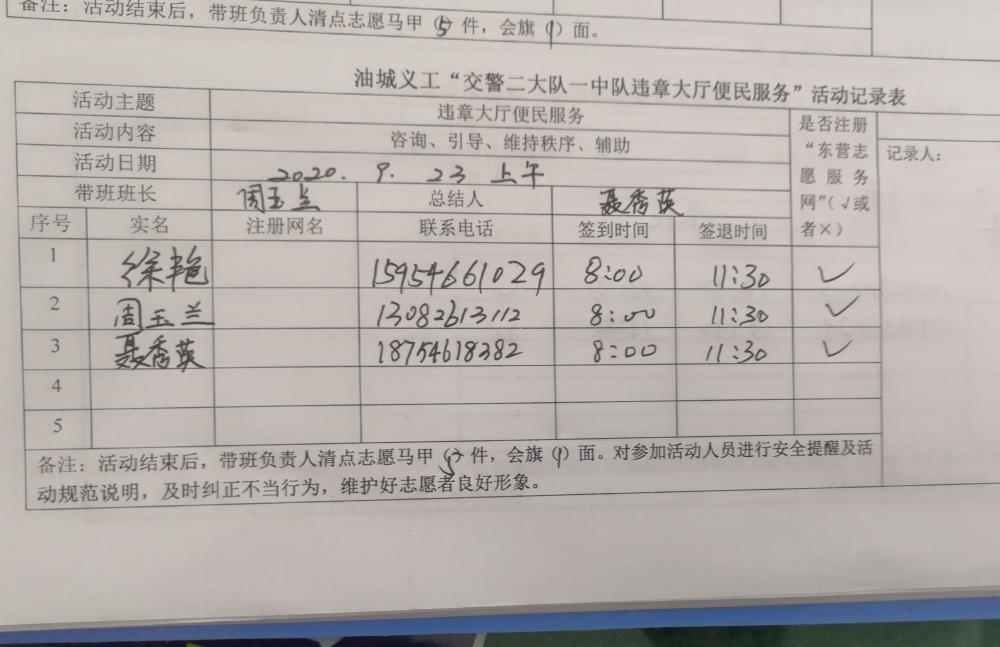 备注：活动结束后，带班负责人清点志愿马甲（5）件，会旗（1）面。
油城义工“交警二大队一中队违章大厅便民服务”活动记录表
活动主题 违章大厅便民服务
活动内容 咨询、引导、维持秩序、辅助
活动日期 2020. 9. 23 上午
带班班长 周玉兰 总结人 聂秀英
是否注册“东营志愿服务网”（√或者×）
记录人：
序号 实名 注册网名 联系电话 签到时间 签退时间
1 徐艳 15954661029 8:00 11:30 ✓
2 周玉兰 13082613112 8:00 11:30 ✓
3 聂秀英 18754618382 8:00 11:30 ✓
4
5
备注：活动结束后，带班负责人清点志愿马甲（5）件，会旗（1）面。对参加活动人员进行安全提醒及活
动规范说明，及时纠正不当行为，维护好志愿者良好形象。